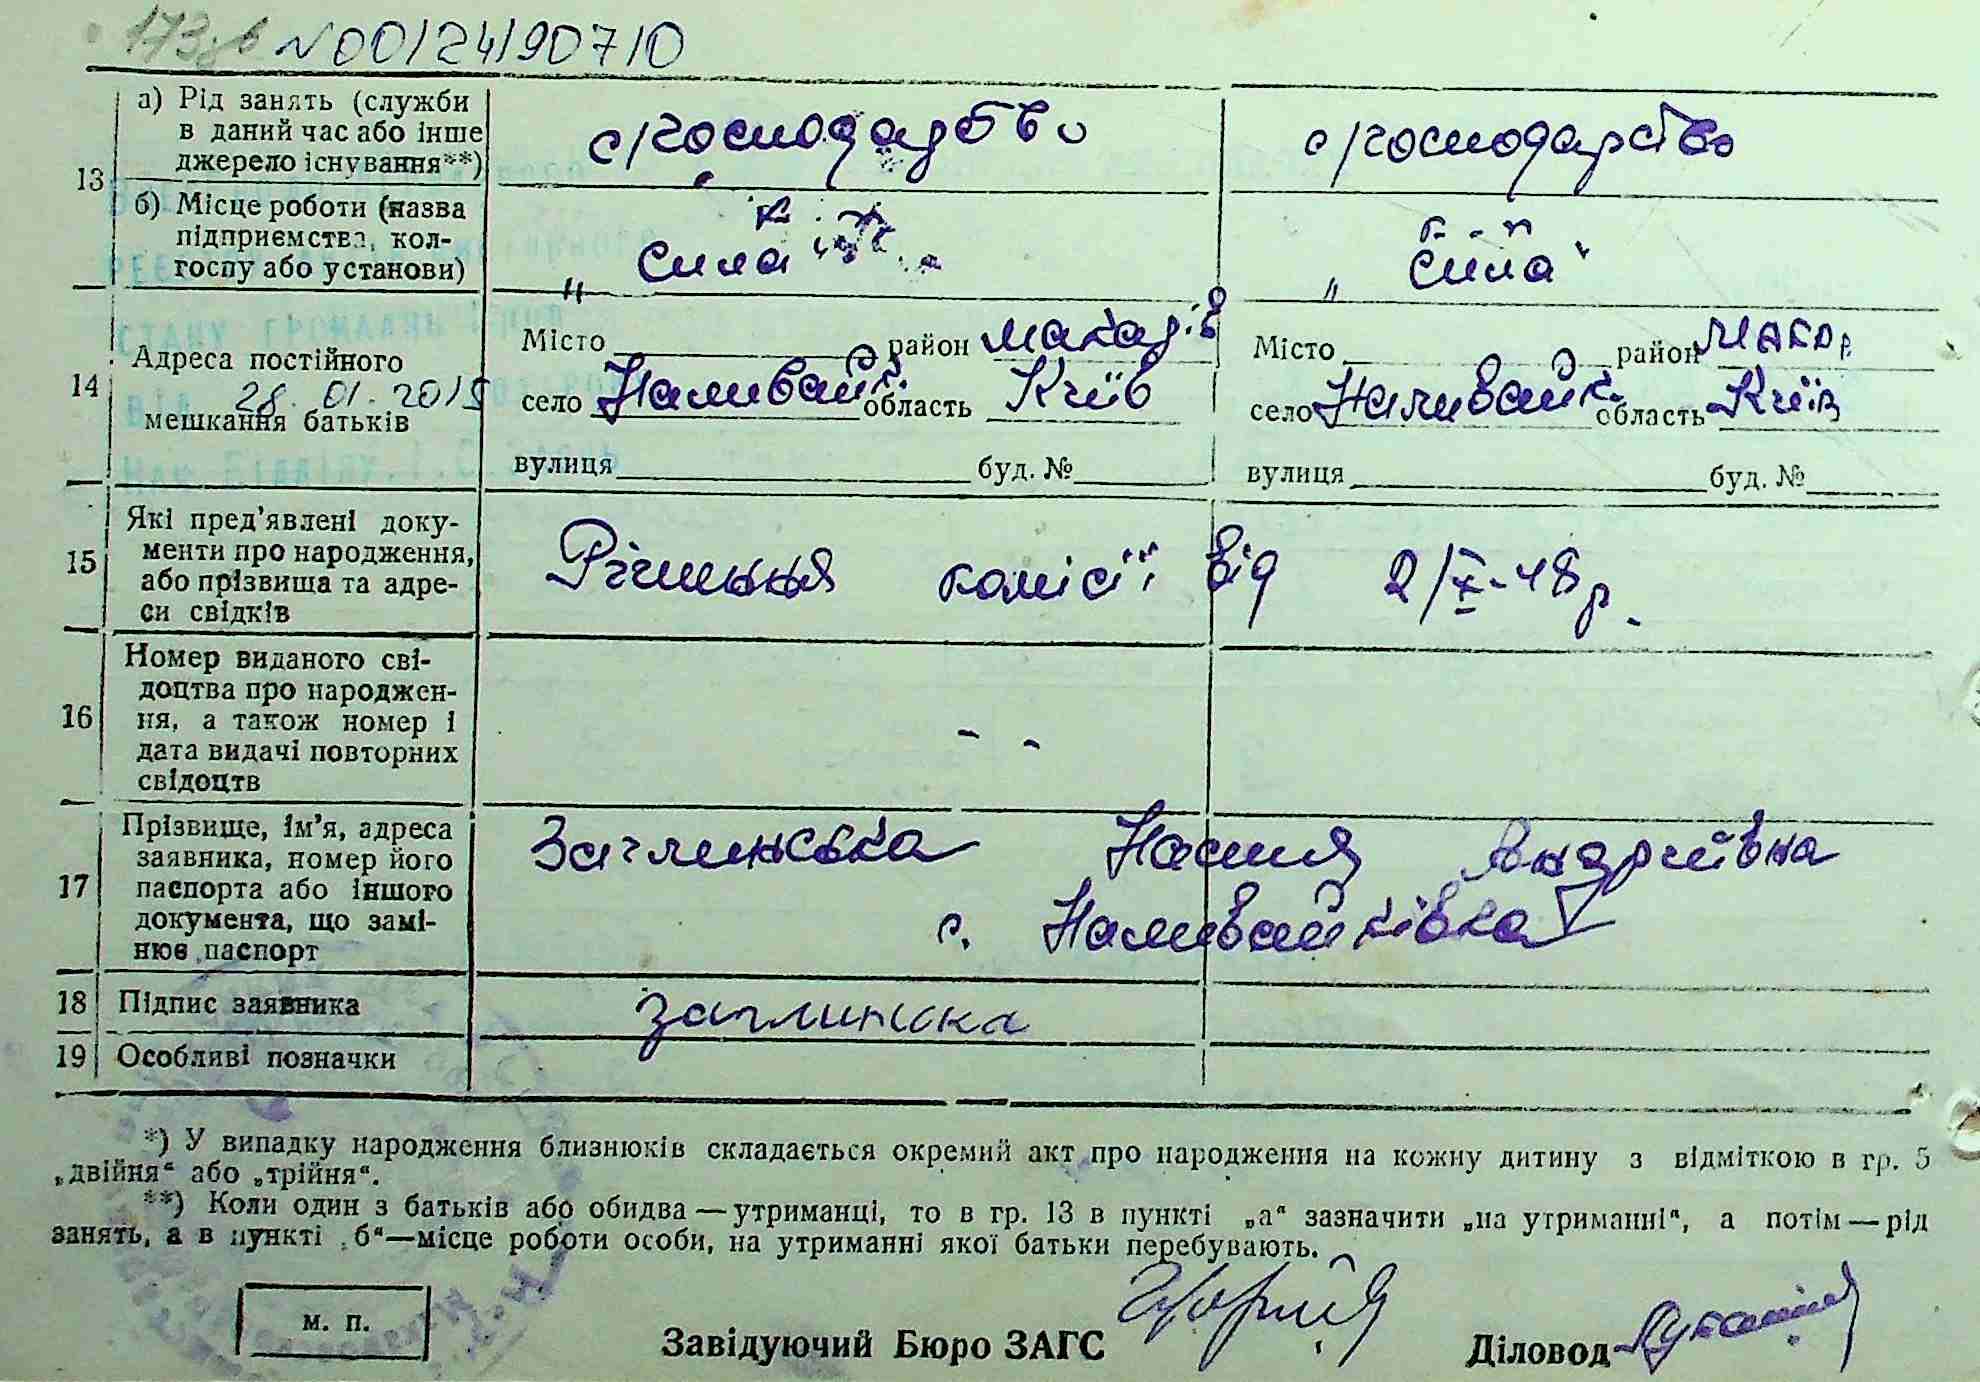 173зв N00124190710
13
а) Рід занять (служби с/господарство с/господарство
в даний час або інше
джерело існування**)
б) Місце роботи (назва
підприємства, кол-
госпу або установи) „ Сила “ „ Сила “
14
Місто район Макарів Місто район Макар.
Адреса постійного
28.01.2015 село Наливайк. область Київ село Наливайк. область Київ
мешкання батьків
вулиця буд. № вулиця буд. №
15
Які пред’явлені доку-
менти про народження, Рішення комісії від 2/X-48 р.
або прізвища та адре-
си свідків
16
Номер виданого сві-
доцтва про народжен-
ня, а також номер і - -
дата видачі повторних
свідоцтв
17
Прізвище, ім’я, адреса Заглинська Настя Андріївна
заявника, номер його
паспорта або іншого
документа, що замі- с. Наливайківка
нює паспорт
18 Підпис заявника Заглинська
19 Особливі позначки
*) У випадку народження близнюків складається окремий акт про народження на кожну дитину з відміткою в гр. 5
„двійня“ або „трійня“.
**) Коли один з батьків або обидва — утриманці, то в гр. 13 в пункті „а“ зазначити „на утриманні“, а потім — рід
занять, а в пункті „б“—місце роботи особи, на утриманні якої батьки перебувають.
м. п.
Завідуючий Бюро ЗАГС Діловод